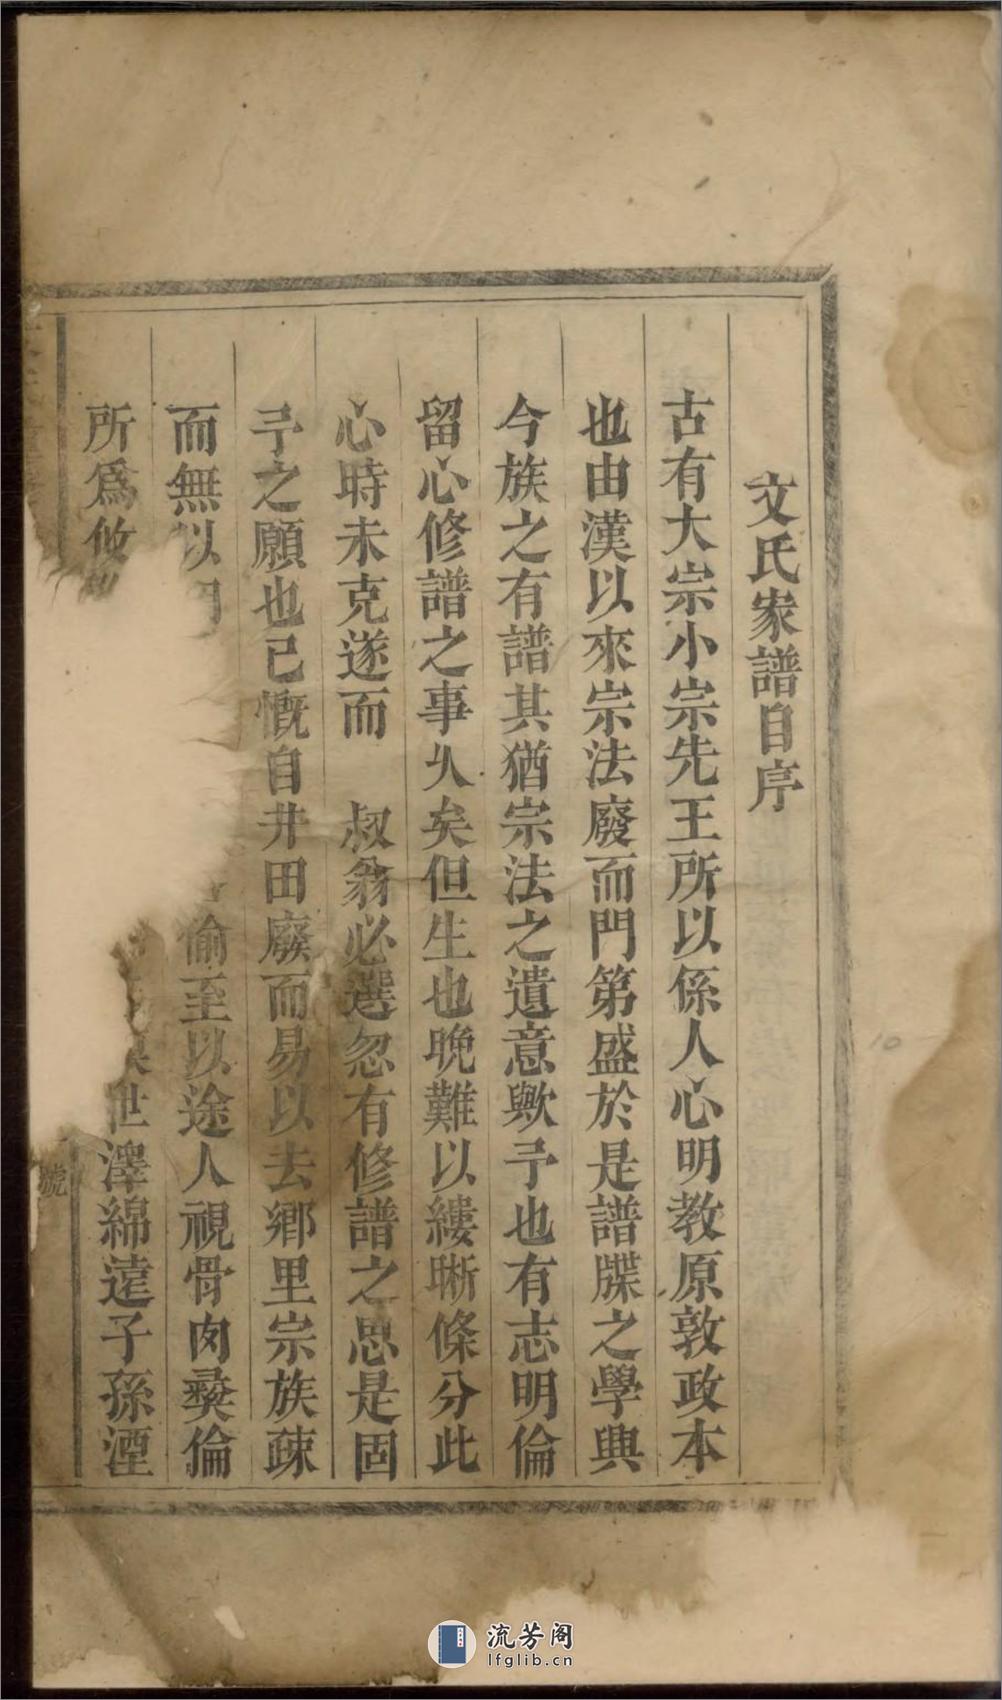 文氏家譜自序
古有大宗小宗先王所以係人心明教原敦政本
也由漢以來宗法廢而門第盛於是譜牒之學興
今族之有譜其猶宗法之遺意歟予也有志明倫
留心修譜之事乆矣但生也晚難以縷晰條分此
心時未克遂而　叔翁必選忽有修譜之思是固
予之願也已慨自井田廢而易以去鄉里宗族疎
而無以偷至以途人視骨肉彛倫
所爲攸世澤綿遠子孫湮
號
流芳阁
lfglib.cn
10